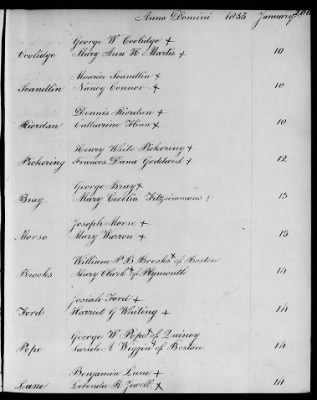 Anno Domini 1855 January
George W Coolidge +
Coolidge Mary Ann H Martis + 10
Maurice Scandlin +
Scandlin Nancy Connor + 10
Dennis Riordan +
Riordan Catharine + 10
Henry White Pickering +
Pickering Frances Dana Goddard + 12
George Bray +
Bray Mary Cecelia Fitzsimmons + 13
Joseph Morse +
Morse Mary Warren + 13
William P. B Brooks + of Boston
Brooks Mary Clark + of Plymouth 14
Josiah Ford +
Ford Harriet G Whiting + 14
George W. Pope + of Quincy
Pope Sarah A Wiggin + of Boston 14
Benjamin Lane +
Lane Lorenda R Jewell + 14